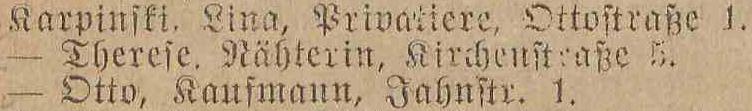 Karpinſki. Lina, Privatiere, Ottoſtraße 1.
— Thereſe. Nähterin, Kirchenſtraße 5.
— Otto, Kaufmann, Jahnſtr. 1.